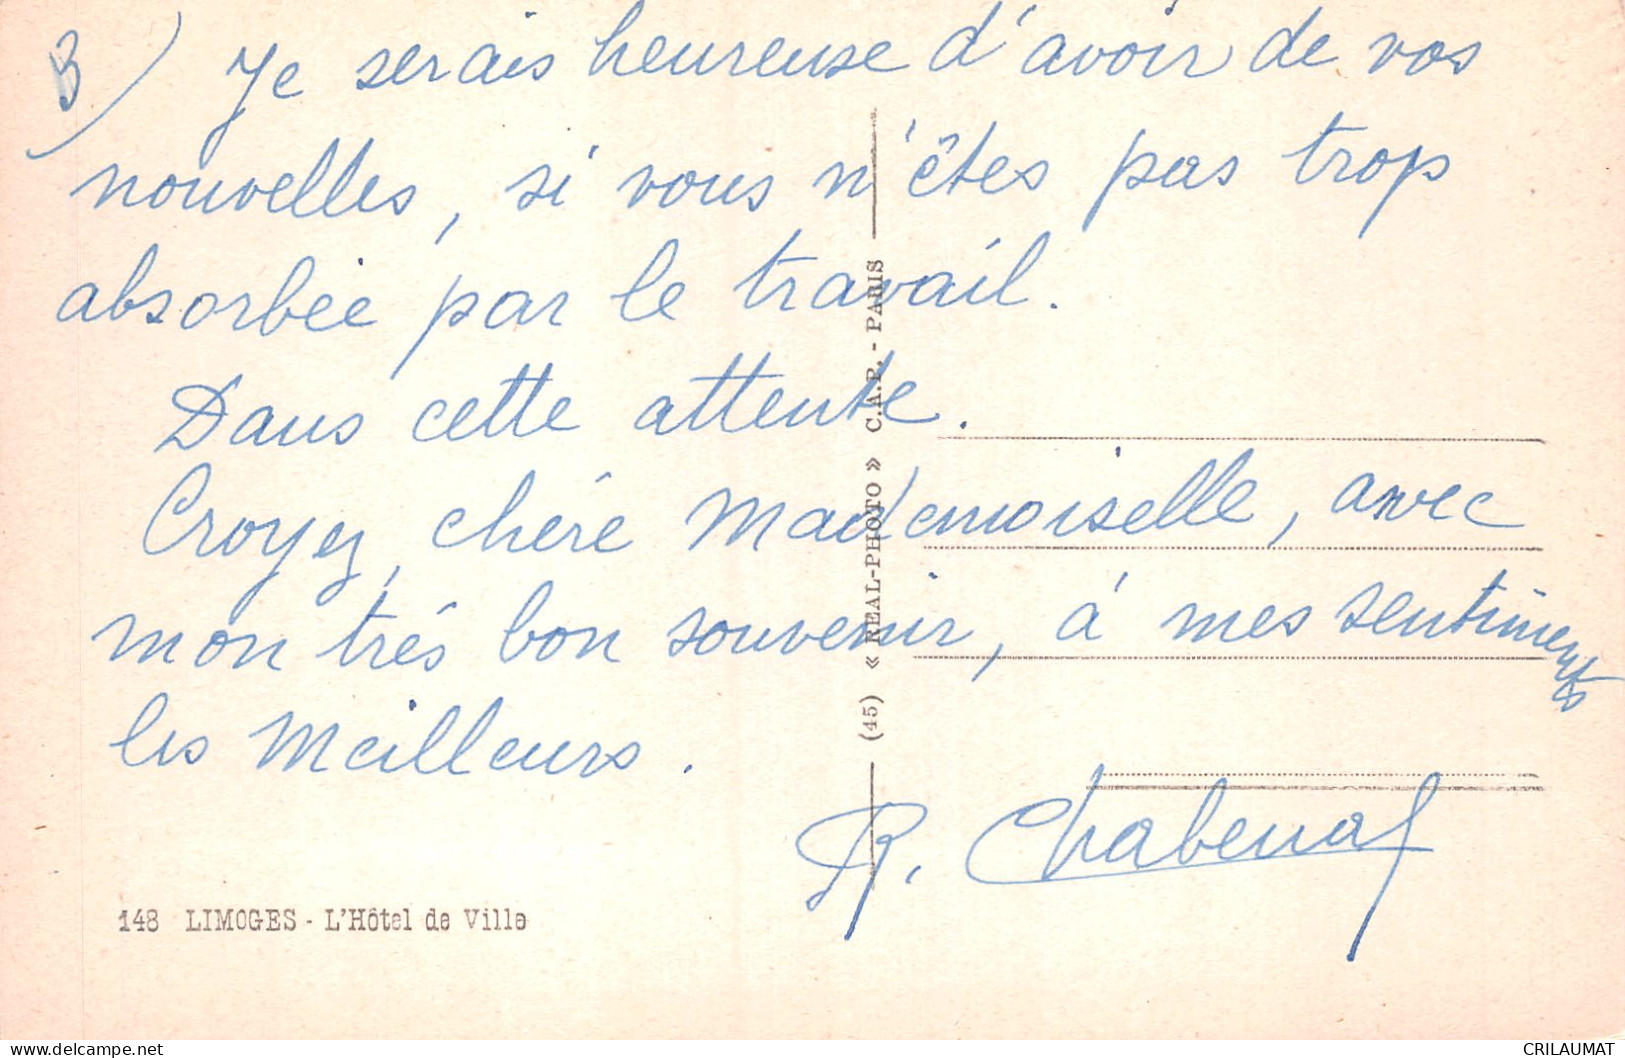 3) Je serais heureuse d'avoir de vos
nouvelles, si vous n'êtes pas trop
absorbée par le travail.
Dans cette attente.
Croyez, chére Mademoiselle, avec
mon trés bon souvenir, á mes sentiments
les meilleurs.
R.
148 LIMOGES - L'Hôtel de Ville
(45) « REAL-PHOTO » C.A.P. - PARIS
www.delcampe.net
CRILAUMAT